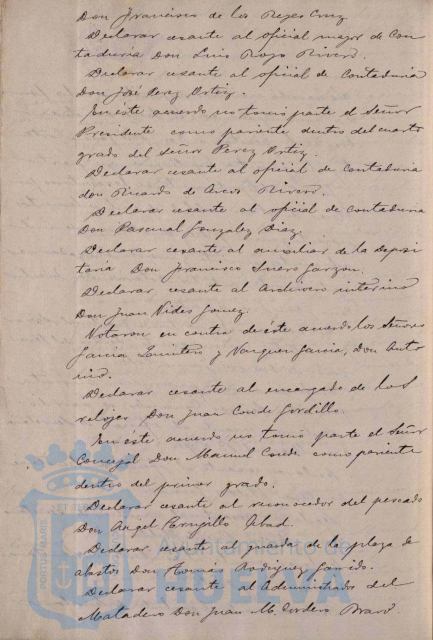 Don Francisco de los Reyes Cruz
Declarar cesante al oficial mayor de Con
taduría Don Luis Rozo Rivero.
Declarar cesante al oficial de Contaduria
Don José Perez Ortiz.
En éste acuerdo no tomó parte el Señor
Presidente como pariente dentro del cuarto
grado del Señor Perez Ortiz.
Declarar cesante al oficial de Contaduria
don Ricardo de Arcos Rivero.
Declarar cesante al oficial de Contaduria
Don Pascual Gonzalez Diaz.
Declarar cesante al auxiliar de la Deposi
taría Don Francisco Suero Garzon.
Declarar cesante al Archivero interino
Don Juan Vides Gomez.
Votaron en contra de éste acuerdo los Señores
Garcia Quintero y Vazquez Garcia, Don Anto
nio.
Declarar cesante al encargado de los
relojes Don Juan Conde Gordillo.
En éste acuerdo no tomó parte el Señor
Concejal Don Manuel Conde como pariente
dentro del primer grado.
Declarar cesante al reconocedor del pescado
Don Angel Parrujillo Abad.
Declarar cesante al guarda de la plaza de
abastos Don Tomás Rodriguez Garrido.
Declarar cesante al Administrador del
Matadero Don Juan M. Cordero Bravo.
Ayuntamiento de